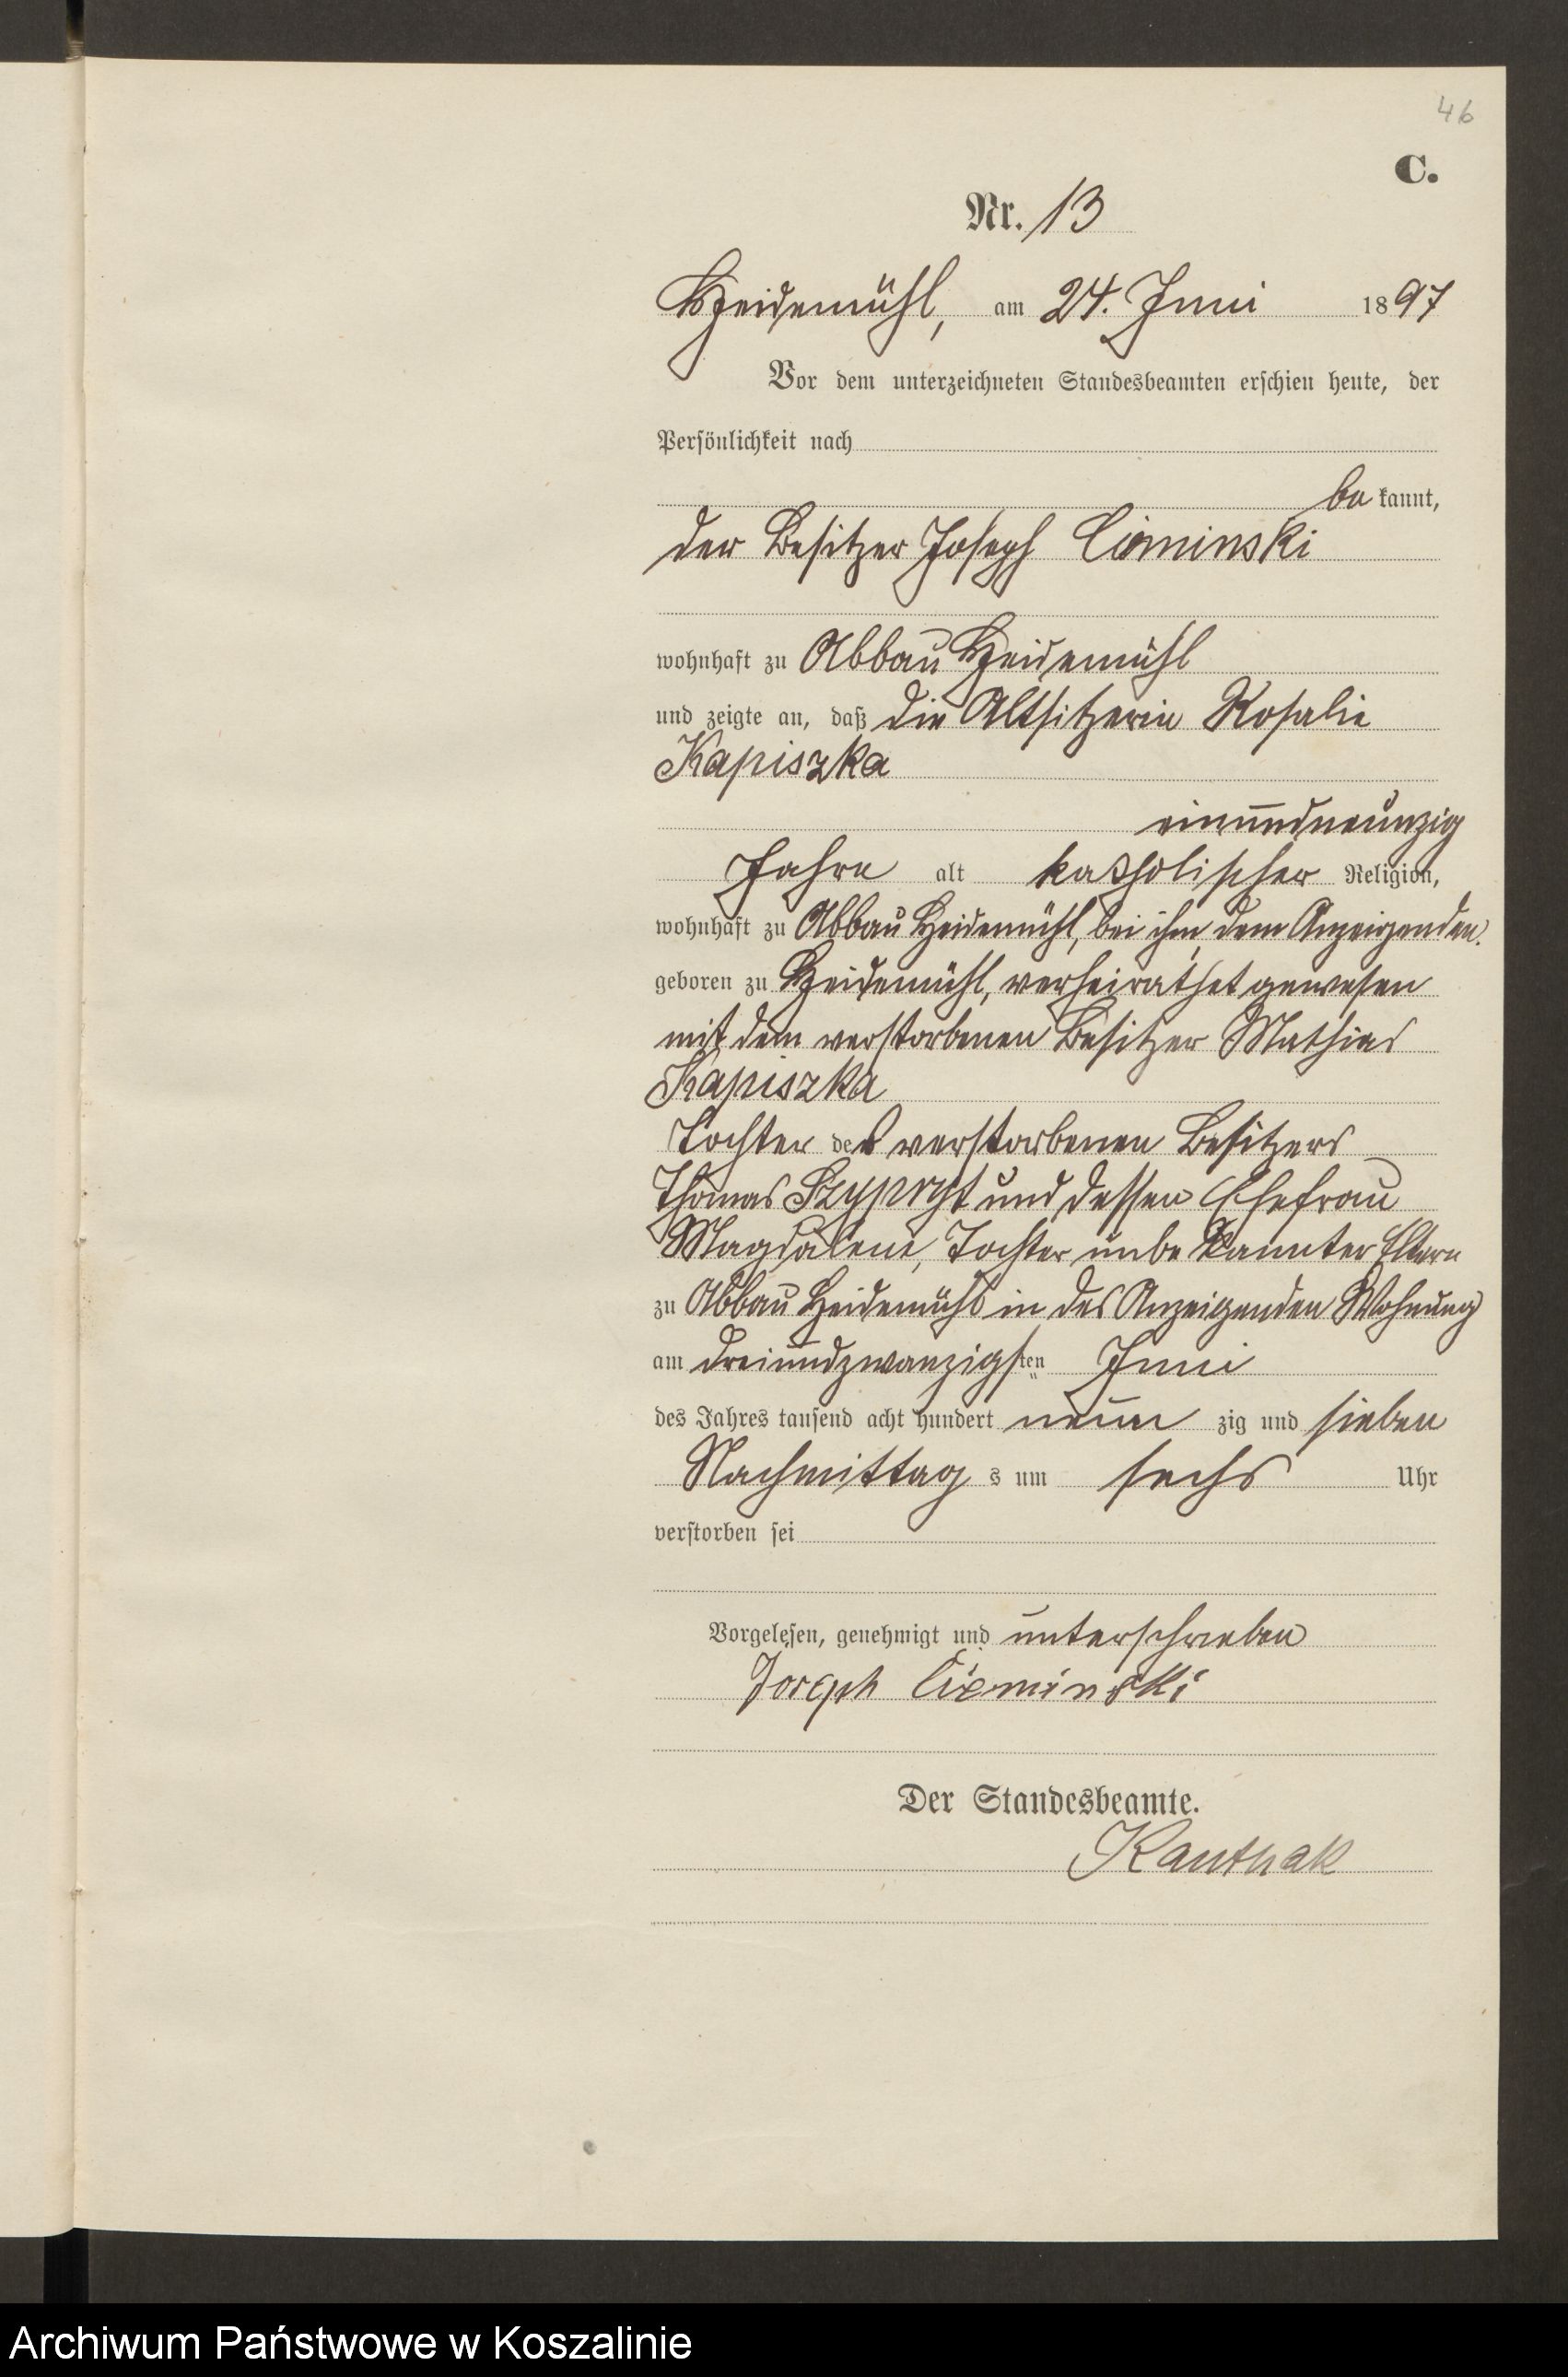 46
C.
Nr. 13
Heidemühl, am 24. Juni 1897
Vor dem unterzeichneten Standesbeamten erschien heute, der
Persönlichkeit nach
bekannt,
der Besitzer Joseph Cieminski
wohnhaft zu Abbau Heidemühl
und zeigte an, daß die Altsitzerin Rosalie
Kapiszka
einundneunzig
Jahre alt katholischer Religion,
wohnhaft zu Abbau Heidemühl, bei ihm, dem Anzeigenden.
geboren zu Heidemühl, verheirathet gewesen
mit dem verstorbenen Besitzer Mathias
Kapiszka
Tochter des verstorbenen Besitzers
Thomas und dessen Ehefrau
Magdalene, Tochter unbekannter Eltern
zu Abbau Heidemühl in des Anzeigenden Wohnung
am dreiundzwanzigsten Juni
des Jahres tausend acht hundert neun zig und sieben
Nachmittag s um sechs Uhr
verstorben sei
Vorgelesen, genehmigt und unterschrieben
Joseph Cieminski
Der Standesbeamte.
Kanthak
Archiwum Państwowe w Koszalinie